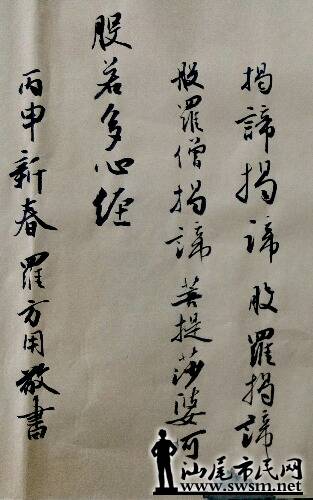 揭諦揭諦股羅揭諦
般羅僧揭諦菩提莎婆訶
股若多心經
丙申新春羅方用敬書
汕尾市民网
www.swsm.net